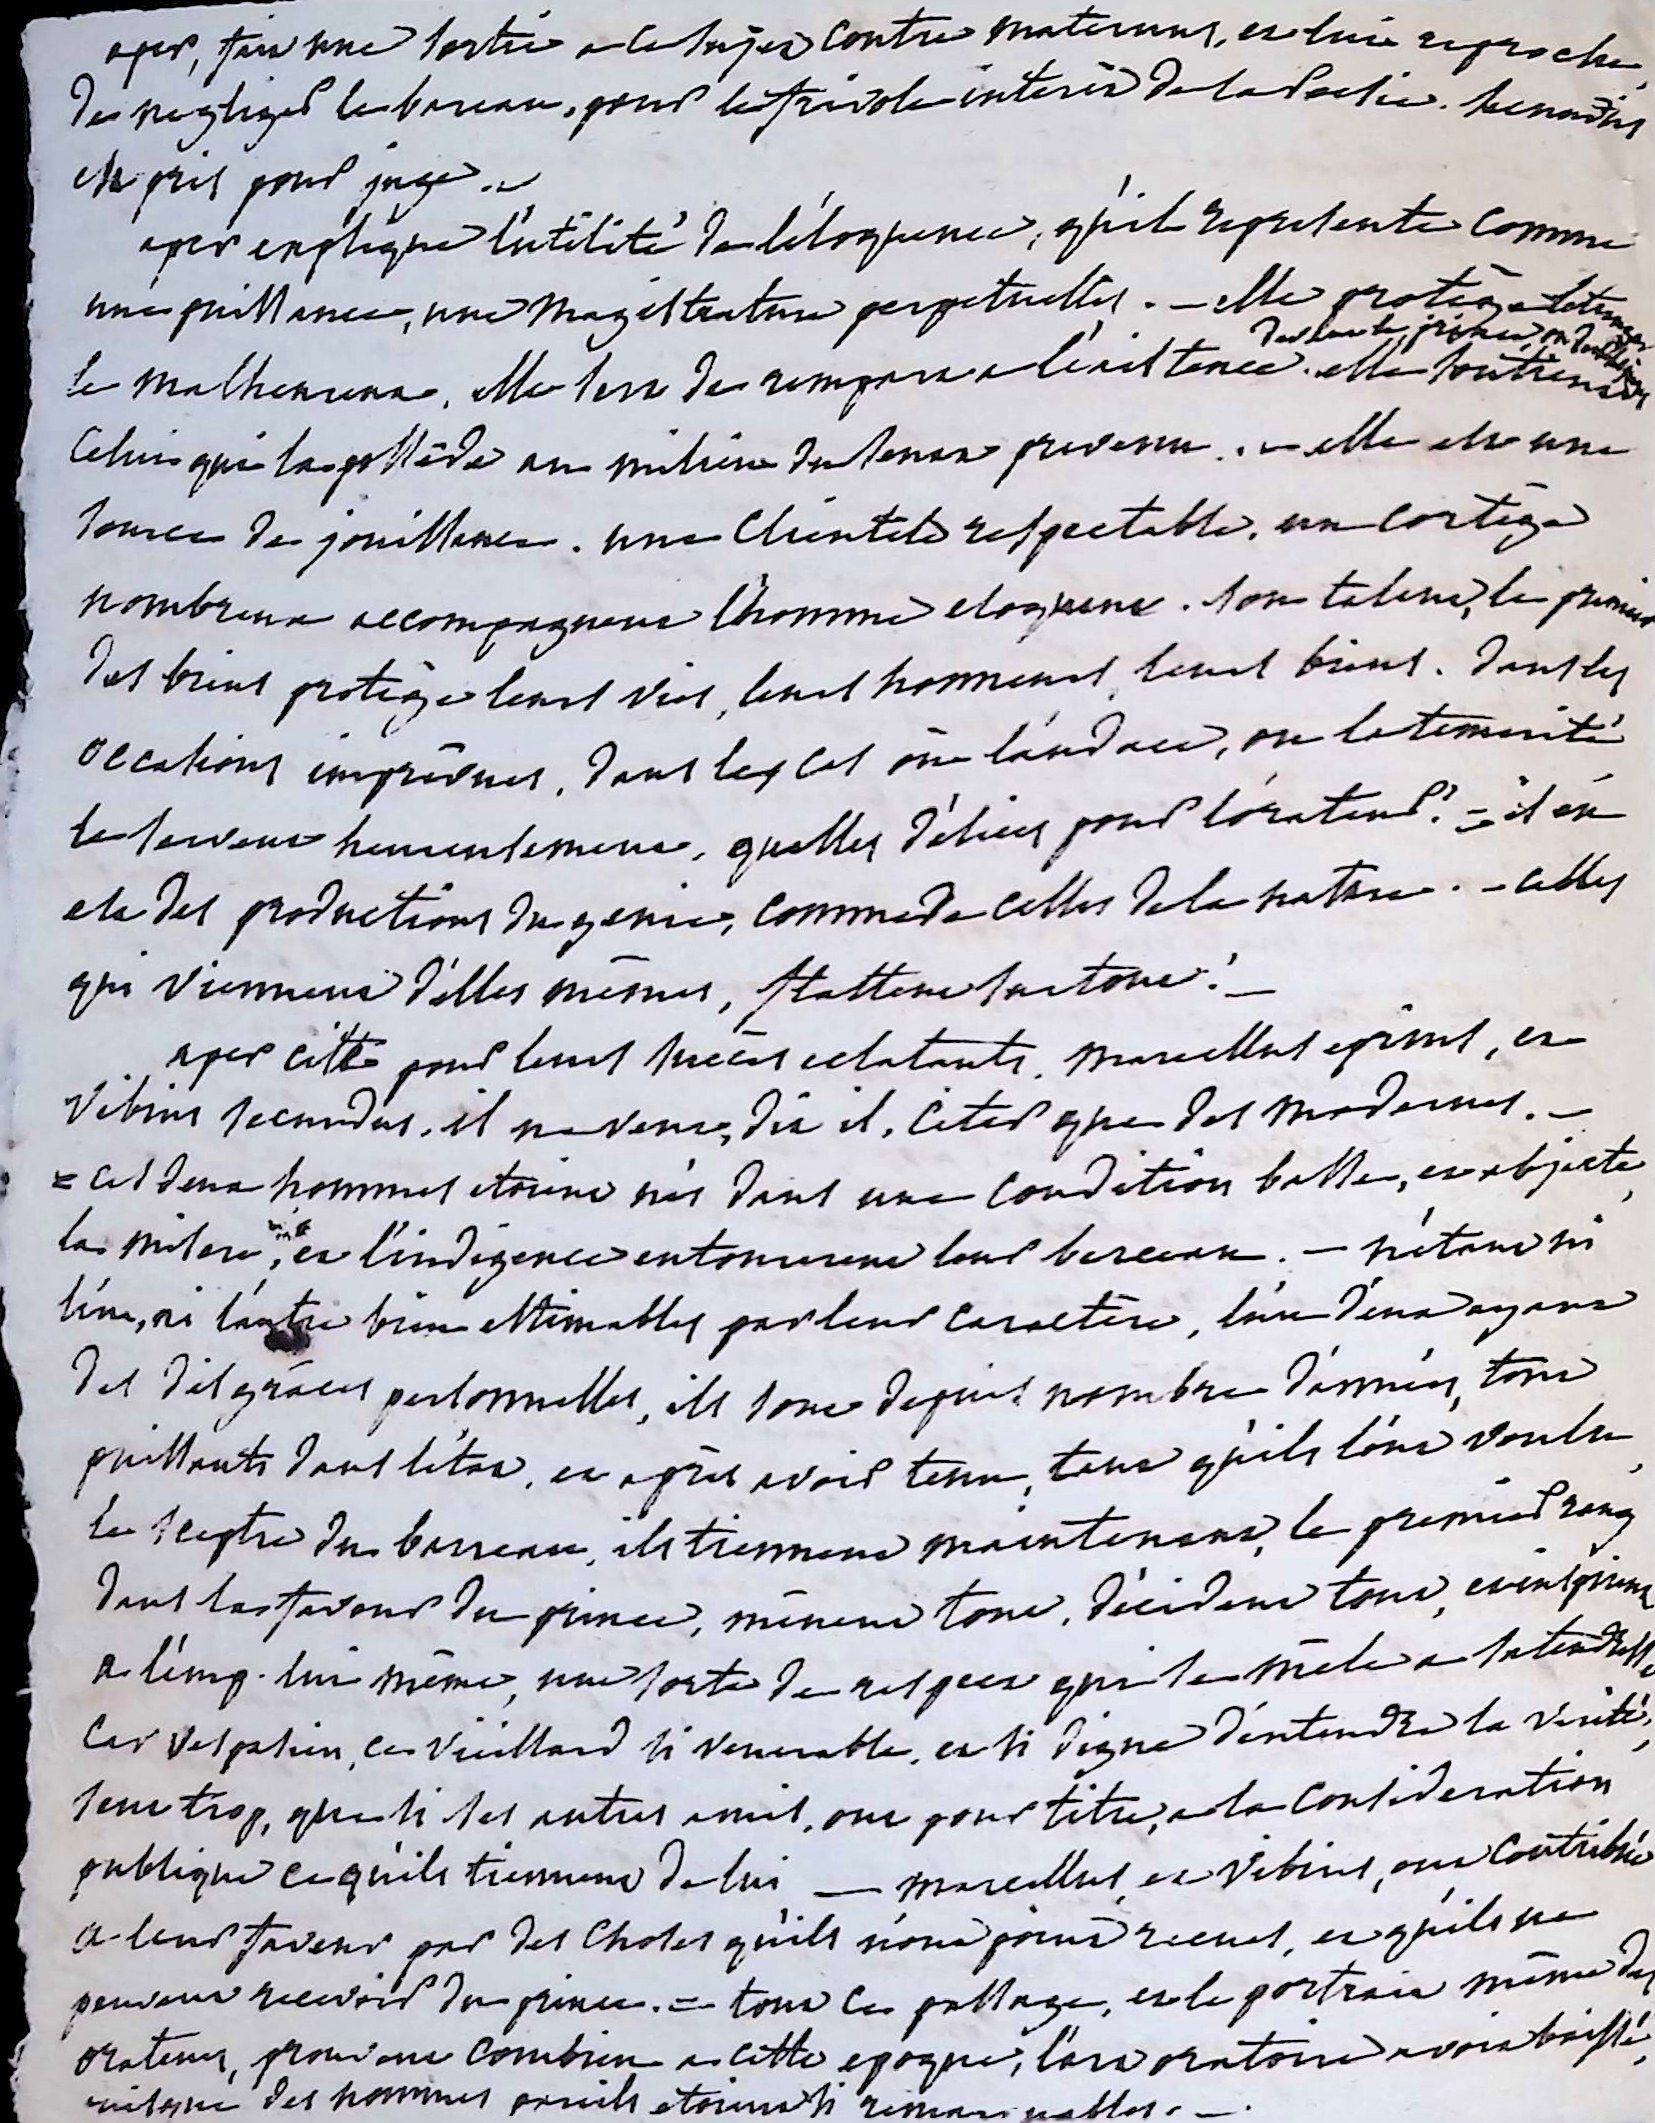 aper, fait une sortie a ce sujet contre maternus, et lui reproche,
de negliger le bareau, pour le frivole interêt de la poësie. secundus
est pris pour juge. -
aper explique l'utilité de l'éloquence, qu'il represente comme
une puissance, une magistrature perpetuelle. - elle protège
devant le prince, on
le malheureux, elle sert de rempart a l'existence. elle soutient
celui qui la possède au milieu du senat prevenu. - elle est une
source de jouissance. une clientele respectable, un cortège
nombreux accompagnent l'homme eloquent. son talent, le premier
des biens protège leurs vies, leurs honneurs, leurs biens. dans les
occasions imprêvues, dans les cas où l'audace, ou la temerité
se servent heureusement, quelles délices pour l'orateur! - il en
est des productions du genie, comme de celles de la nature. - celles
qui viennent d'elles mêmes, flattent surtout! -
aper cite pour leurs succès eclatants, marcellus eprius, et
vibius secundus. il ne veut, dit il, citer que des modernes. -
= ces deux hommes etoient nés dans une condition basse, et abjecte,
la misere, et l'indigence entourerent leur berceau. - n'étant ni
l'un, ni l'autre bien estimables par leur caractère, l'un d'eux ayant
des disgrâces personnelles, ils sont depuis nombre d'années, tout
puissants dans l'état, et après avoir tenu, tant qu'ils l'ont voulu,
le sceptre du barreau, ils tiennent maintenant, le premier rang
dans la faveur du prince, mênent tout, décident tout, et inspirent
a l'emp. lui même, une sorte de respect qui se mêle a sa tendresse
car vespasien, ce vieillard si venerable, et si digne d'entendre la verité,
sent trop, que si ses autres amis, ont pour titre, a la consideration
publique ce qu'ils tiennent de lui — marcellus, et vibius, ont contribué
a leur faveur par des choses qu'ils n'ont point recues, et qu'ils ne
peuvent recevoir du prince. = tout ce passage, et le portrait même des
orateurs, prouvent combien a cette epoque, l'art oratoire avoit baissé,
puisque des hommes pareils etoient si remarquables. -